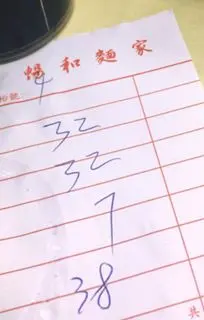 和麵家
4
32
32
7
38
共